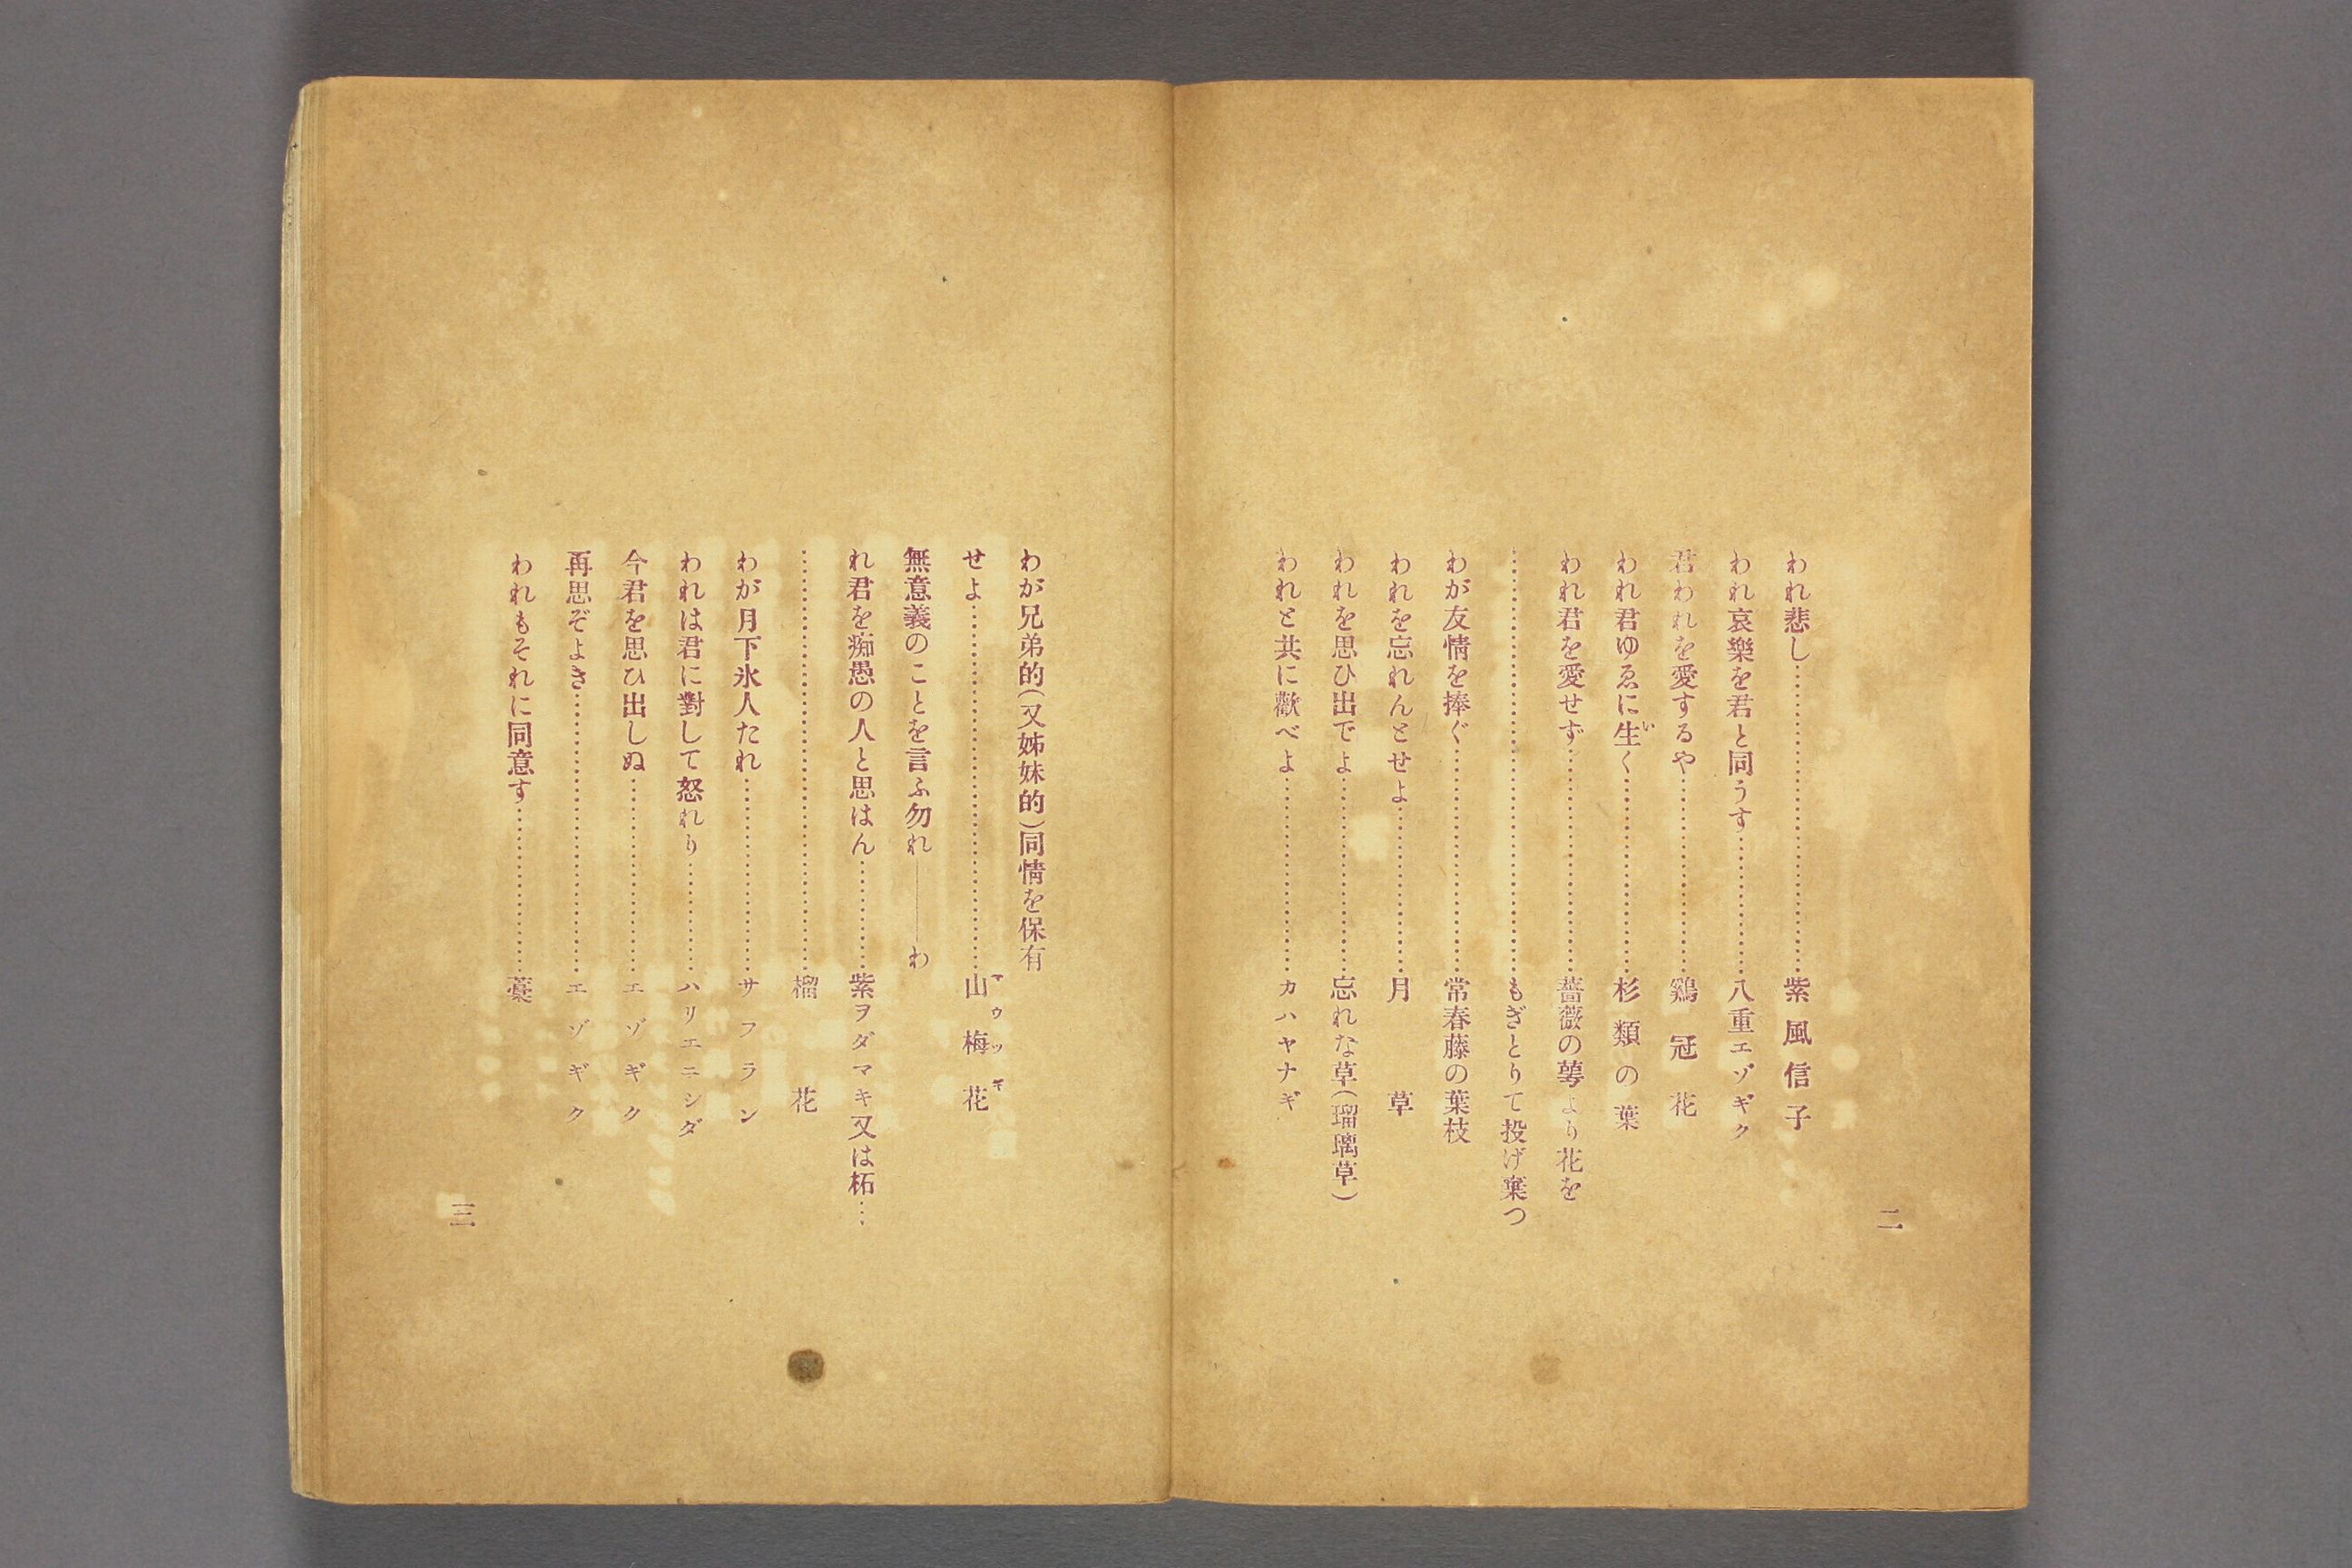 われ悲し……………………………紫風信子
われ哀樂を君と同うす……………八重エゾギク
君われを愛するや…………………鷄冠花
われ君ゆゑに生く…………………杉類の葉
われ君を愛せず……………………薔薇の萼より花を
………………………………………もぎとりて投げ棄つ
わが友情を捧ぐ……………………常春藤の葉枝
われを忘れんとせよ………………月草
われを思ひ出でよ…………………忘れな草(瑠璃草)
われと共に歡べよ…………………カハヤナギ
二
わが兄弟的(又姊妹的)同情を保有
せよ…………………………………山梅花
無意義のことを言ふ勿れ――わ
れ君を痴愚の人と思はん…………紫ヲダマキ又は柘…
………………………………………榴花
わが月下氷人たれ…………………サフラン
われは君に對して怒れり…………ハリエニシダ
今君を思ひ出しぬ…………………エゾギク
再思ぞよき…………………………エゾギク
われもそれに同意す………………藁
三